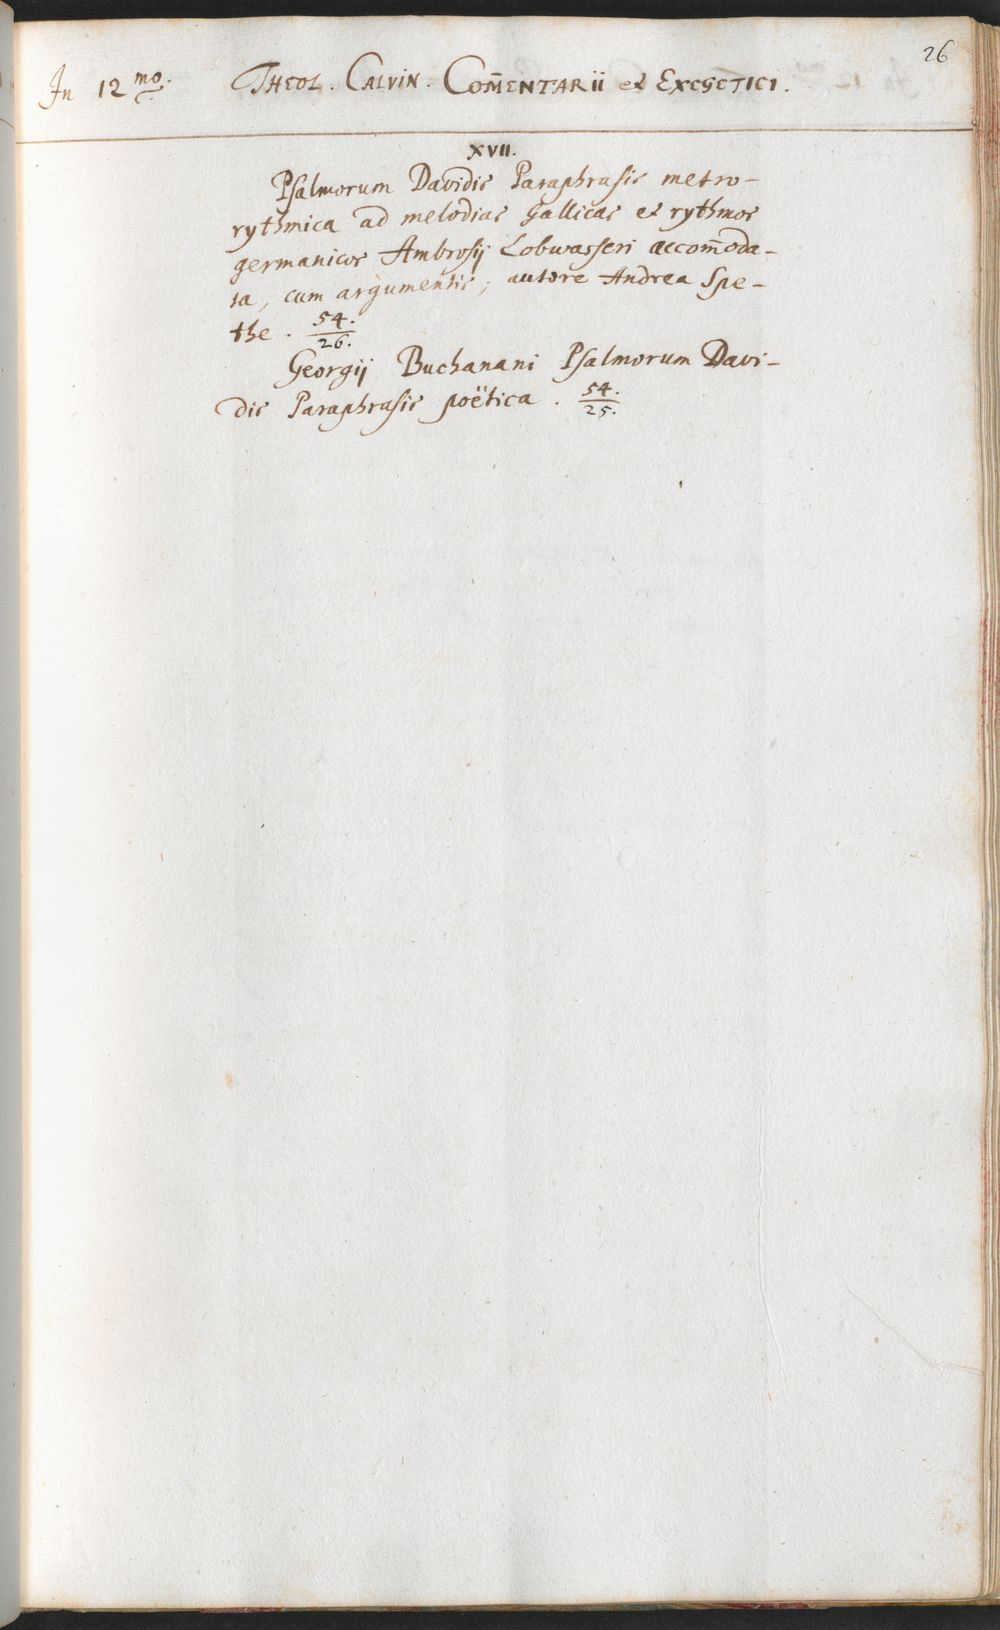 26
In 12mo. THEOL. CALVIN. COM̄ENTARII et EXEGETICI.
XVII.
Psalmorum Davidis Paraphrasis metro-
rythmica ad melodias Gallicas et rythmos
germanicos Ambrosij Lobwasseri accom̄oda-
ta, cum argumentis; autore Andrea Spe-
the. 54./26.
Georgij Buchanani Psalmorum Davi-
dis Paraphrasis poëtica. 54./25.